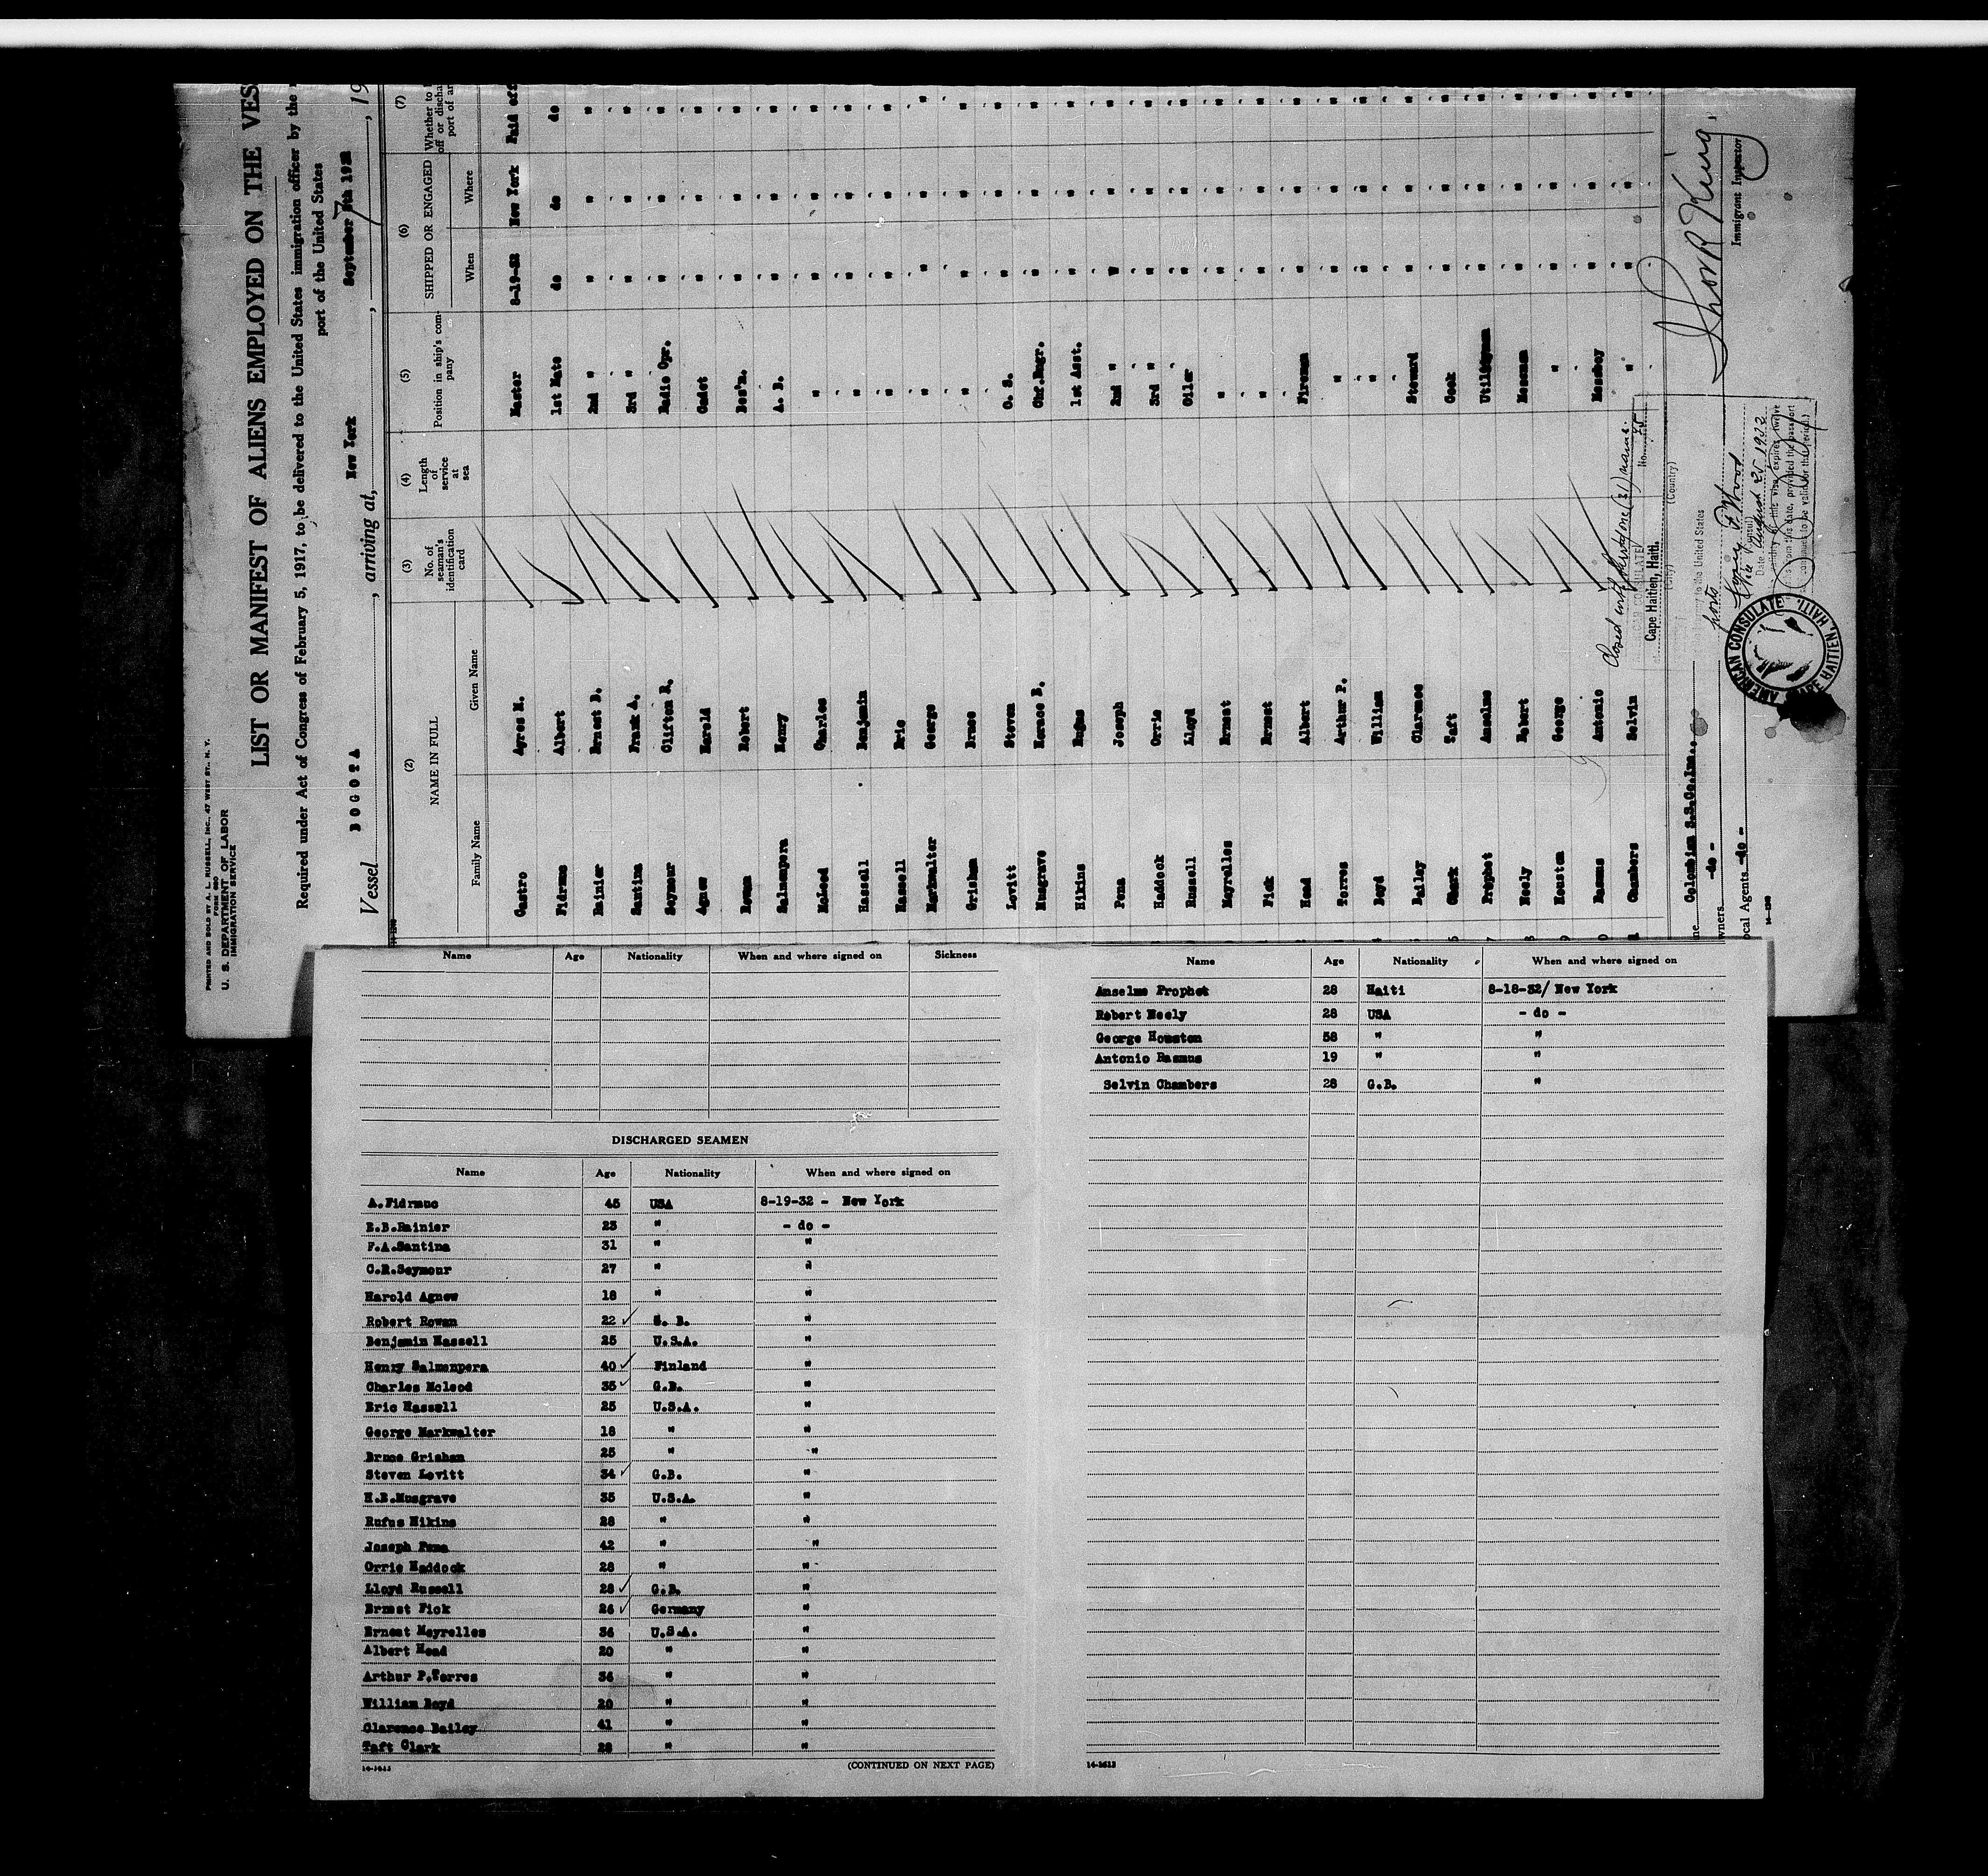 PRINTED AND SOLD BY A. L. RUSSELL, INC., 47 WEST ST., N. Y.
FORM 680
U. S. DEPARTMENT OF LABOR
IMMIGRATION SERVICE
LIST OR MANIFEST OF ALIENS EMPLOYED ON THE VES
Required under Act of Congress of February 5, 1917, to be delivered to the United States immigration officer by the
port of the United States
Vessel BOGOTA, arriving at, New York, September 7th 1932, 19
(2) (3) (4) (5) (6) (7)
NAME IN FULL No. of seaman's identification card Length of service at sea Position in ship's company SHIPPED OR ENGAGED Whether to
off or discha
port of ar
Family Name Given Name When Where
Castro Ayres M. Master 8-19-32 New York Paid off
Fidrmuc Albert 1st Mate do do do
Rainier Ernest B. 2nd " " " "
Santina Frank A. 3rd " " " "
Seymour Clifton R. Radio Opr. " " "
Agnew Harold Cadet " " "
Rowan Robert Bos'n. " " "
Salmenpera Henry A. B. " " "
McLeod Charles " " " "
Hassell Benjamin " " " "
Hassell Eric " " " "
Markwalter George " " " "
Grisham Bruce " " " "
Levitt Steven O. S. " " "
Musgrave Horace B. Chf.Engr. " " "
Hikins Rufus 1st Asst. " " "
Pena Joseph 2nd " " " "
Haddock Orrie 3rd " " " "
Russell Lloyd Oiler " " "
Meyrelles Ernest " " " "
Fick Ernest " " " "
Head Albert Fireman " " "
Torres Arthur P. " " " "
Boyd William " " " "
Bailey Clarence Steward " " "
Clark Taft Cook " " "
Prophet Anselme Utilityman " " "
Neely Robert Messman " " "
Houston George " " " "
Rasmus Antonio Messboy " " "
Chambers Selvin " " " "
Closed with thirty one (31) names.
No. 75
Cape Haitien, Haiti.
(City) (Country)
to the United States
ports
Date August 25 1932
AMERICAN CONSULATE
CAPE HAITIEN, HAITI.
Colombian S.S.Co.Inc.
wners -do-
ocal Agents -do-
Immigrant Inspector
Name Age Nationality When and where signed on Sickness
DISCHARGED SEAMEN
Name Age Nationality When and where signed on
A.Fidrmuc 45 USA 8-19-32 - New York
E.B.Rainier 23 " - do -
F.A.Santina 31 " "
C.R.Seymour 27 " "
Harold Agnew 18 " "
Robert Rowan 22 G. B. "
Benjamin Hassell 25 U.S.A. "
Henry Salmenpera 40 Finland "
Charles Mcleod 35 G.B. "
Eric Hassell 25 U.S.A. "
George Markwalter 18 " "
Bruce Grisham 25 " "
Steven Levitt 34 G.B. "
H.B.Musgrave 35 U.S.A. "
Rufus Hikins 28 " "
Joseph Pena 42 " "
Orrie Haddock 28 " "
Lloyd Russell 28 G.B. "
Ernest Fick 26 Germany "
Ernest Meyrelles 36 U.S.A. "
Albert Head 20 " "
Arthur P.Torres 36 " "
William Boyd 20 " "
Clarence Bailey 41 " "
Taft Clark 28 " "
14-3613 (CONTINUED ON NEXT PAGE)
Name Age Nationality When and where signed on
Anselme Prophet 28 Haiti 8-18-32/ New York
Robert Neely 28 USA - do -
George Houston 58 " "
Antonio Rasmus 19 " "
Selvin Chambers 28 G.B. "
14-3613